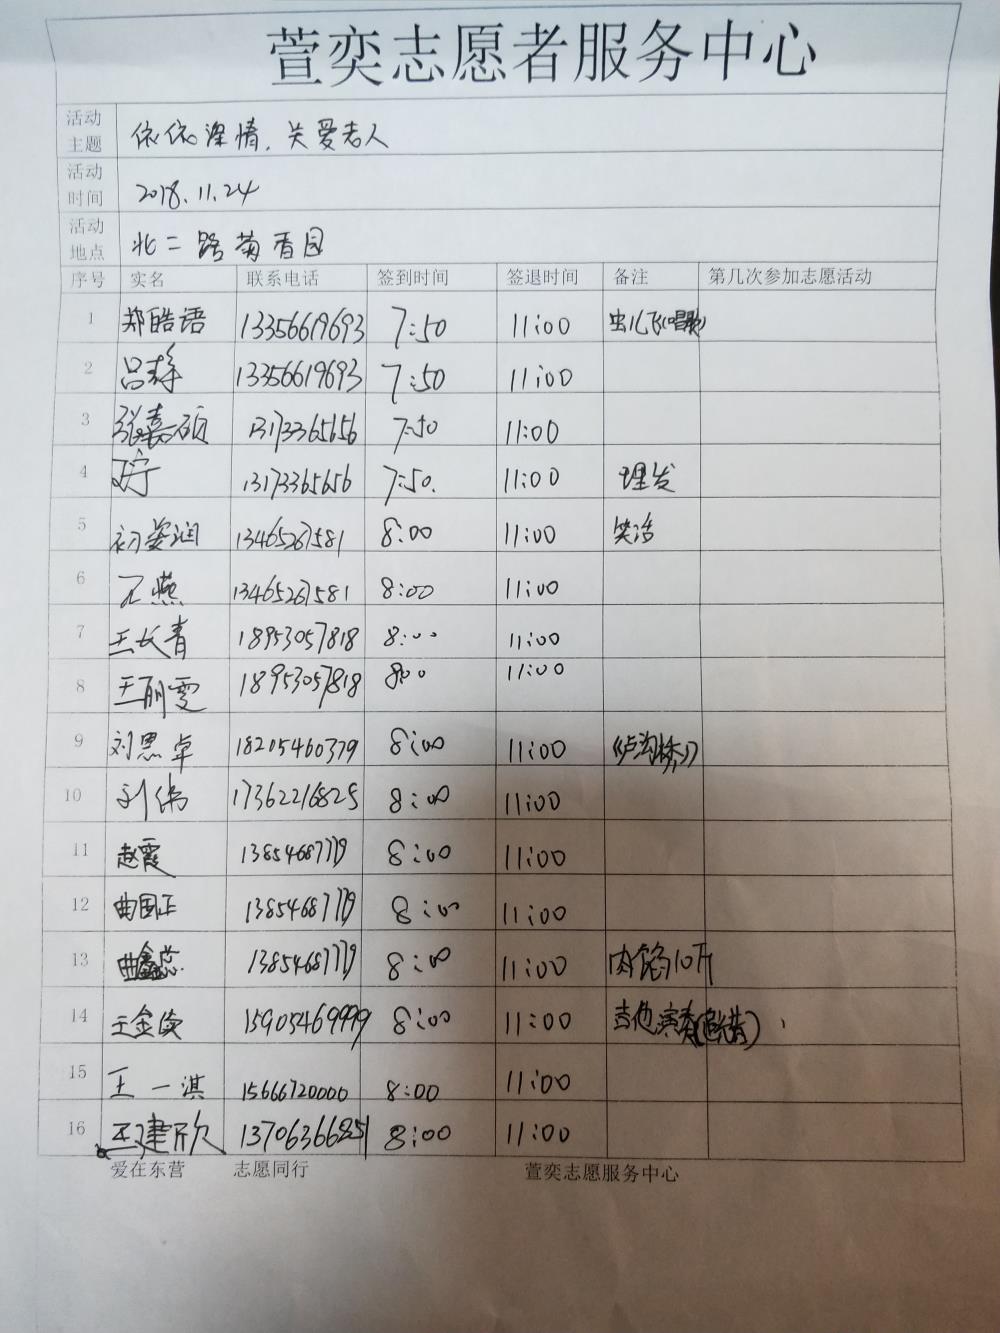 萱奕志愿者服务中心
活动主题 依依深情，关爱老人
活动时间 2018.11.24
活动地点 北二路菊香园
序号 实名 联系电话 签到时间 签退时间 备注 第几次参加志愿活动
1 郑皓语 13356619693 7:50 11:00 虫儿飞(唱歌)
2 吕静 13356619693 7:50 11:00
3 张嘉硕 13173365656 7:50 11:00
4 13173365656 7:50. 11:00 理发
5 初姿润 13465267581 8:00 11:00 笑话
6 石燕 13465267581 8:00 11:00
7 王长青 18953057818 8:00 11:00
8 王丽雯 18953057818 8:00 11:00
9 刘思卓 18205460379 8:00 11:00 《卢沟桥》
10 刘伟 17362216825 8:00 11:00
11 赵霞 13854687779 8:00 11:00
12 曲国正 13854687779 8:00 11:00
13 曲鑫蕊 13854687779 8:00 11:00 肉馅10斤
14 王金 15905469999 8:00 11:00 吉他演奏
15 王一淇 15666720000 8:00 11:00
16 王建欣 13706366851 8:00 11:00
爱在东营 志愿同行 萱奕志愿服务中心